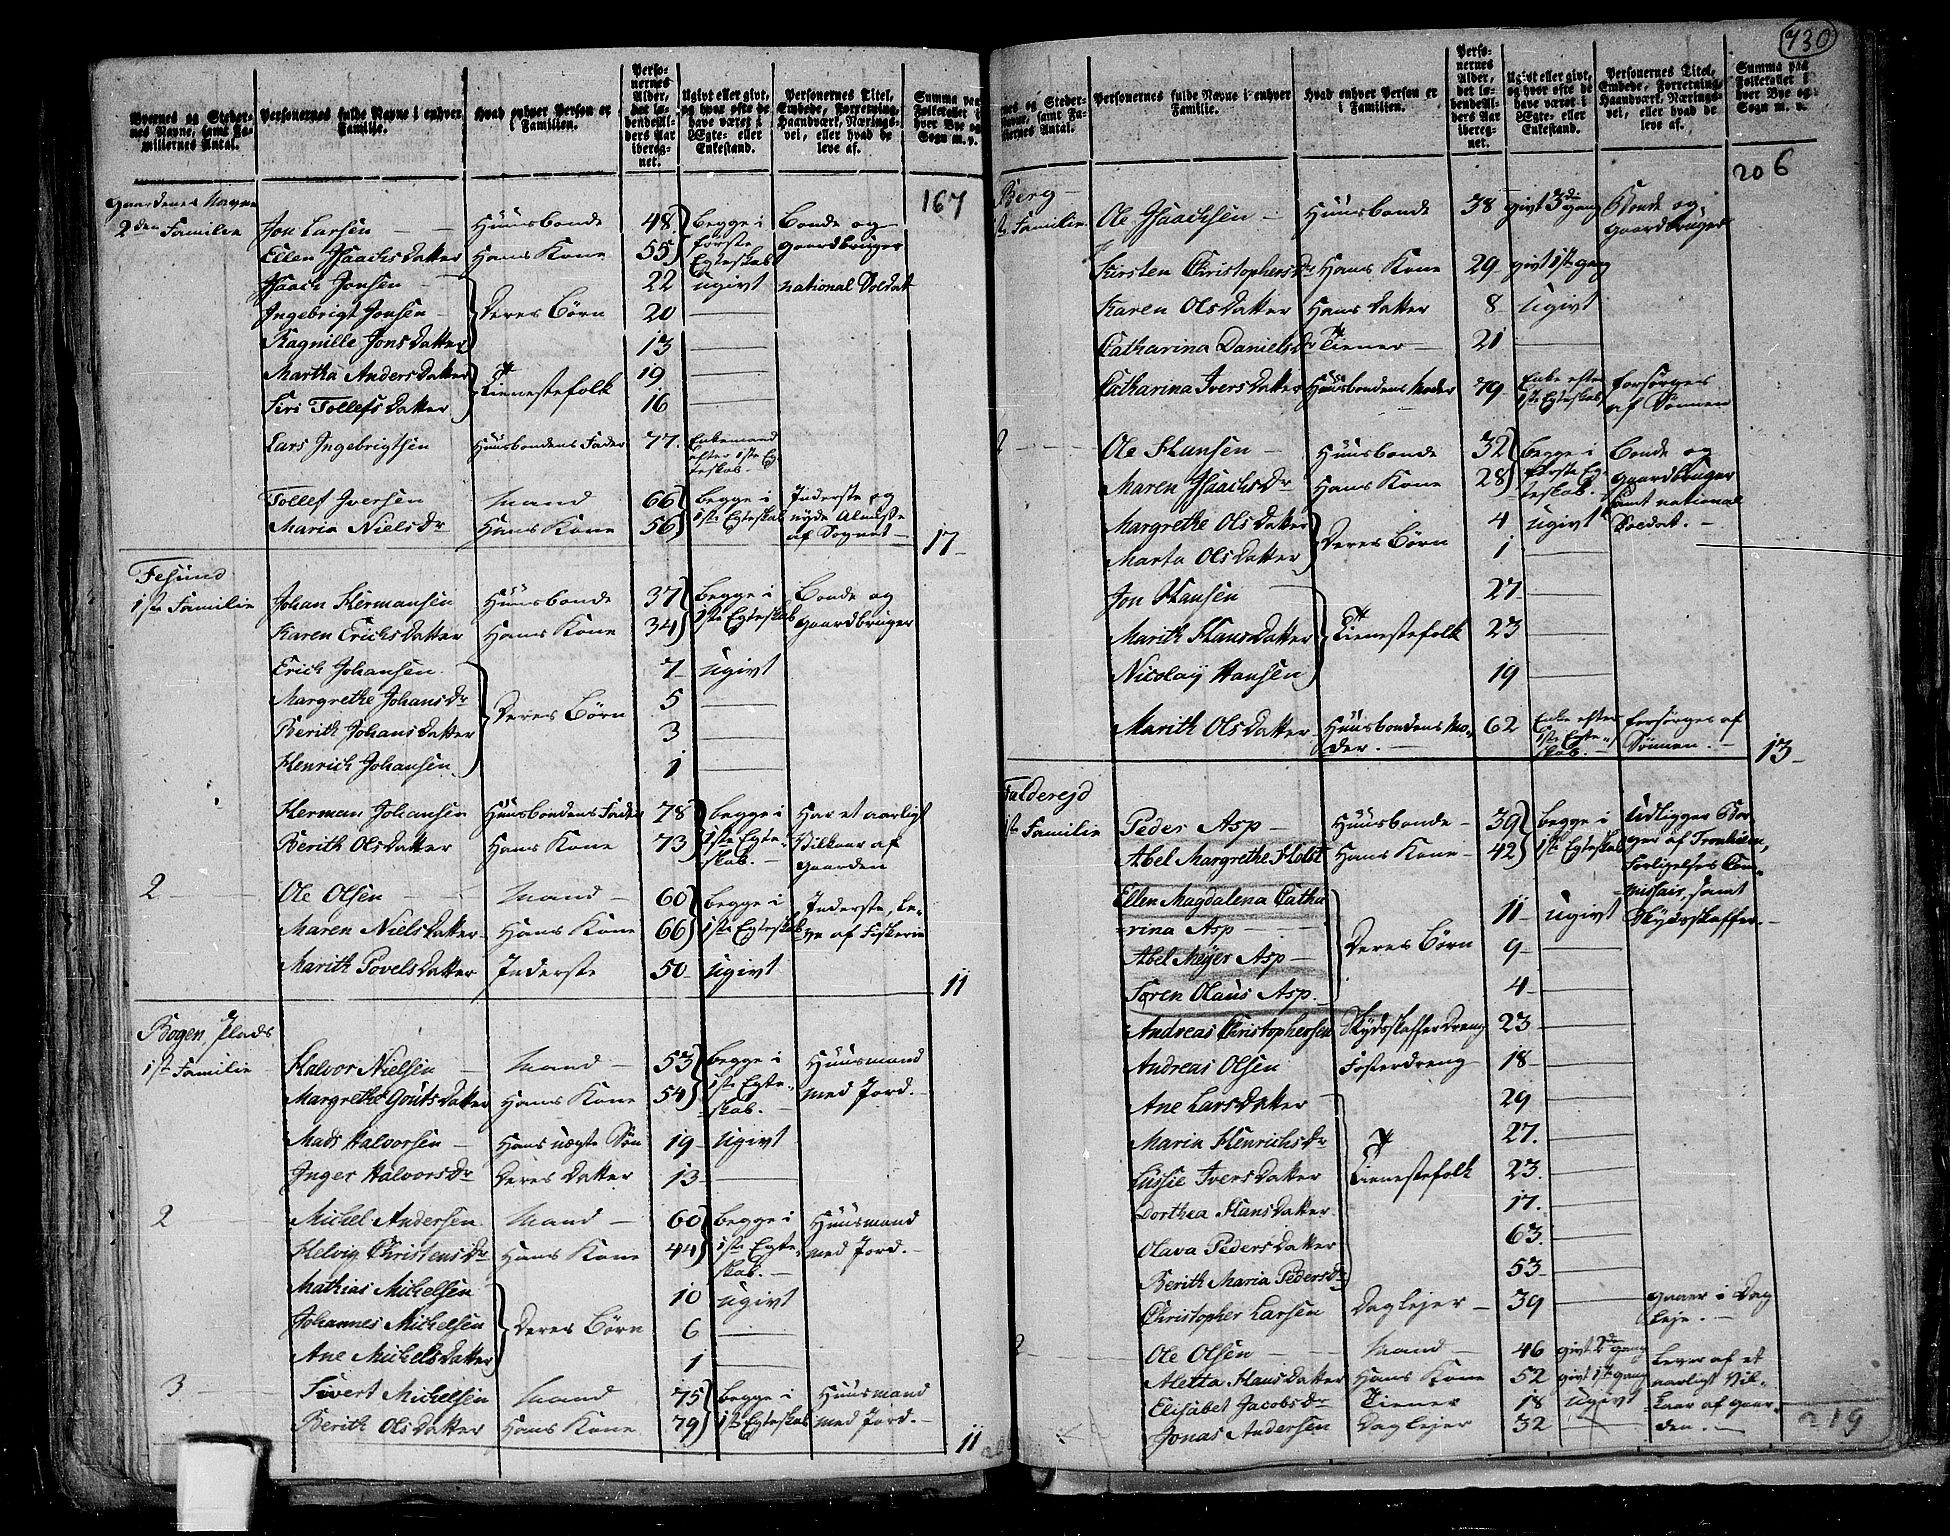 Byernes og Steder-
nes Navne, samt Fa-
miliernes Antal.
Personernes fulde Navne i enhver
Familie.
Hvad enhver Person er
i Familien.
Perso-
nernes
Alder,
det lø-
bende Al-
ders Aar
ibereg-
net.
Ugivt eller givt,
og hvor ofte de
have været i
Egte- eller
Enkestand.
Personernes Titel,
Embede, Forretning,
Haandværk, Nærings-
vei, eller hvad de
leve af.
Summa paa
Folketallet i
hver Bye og
Sogn m. v.
167
Gaardenes Navne
2den Familie Jon Larsen Huusbonde 48 begge i Bonde og
Ellen Isaachsdatter Hans Kone 55 første Egteskab gaardbruger
Isaach Jonsen 22 ugivt national Soldat
Ingebrigt Jonsen Deres Børn 20
Ragnille Jonsdatter 13
Martha Andersdatter Tienestefolk 19
Siri Tollefsdatter 16
Lars Ingebrigtsen Huusbondens Fader 77 Enkemand
efter 1ste Eg-
teskab.
Tollef Iversen Mand 66 begge i Inderste og
Maria Nielsdr Hans Kone 56 1ste Egteskab nyde Almisse
af Sognet 17
Fesund
1ste Familie Johan Hermansen Huusbonde 37 begge i Bonde og
Karen Erichsdatter Hans Kone 34 1ste Egteskab gaardbruger
Erich Johansen 7 ugivt
Margrethe Johansdr 5
Deres Børn
Berith Johansdatter 3
Henrich Johansen 1
Herman Johansen Huusbondens Fader 78 begge i Har et aarligt
Berith Olsdatter Hans Kone 73 1ste Egte- Vilkaar af
skab. Gaarden
2 Ole Olsen Mand 60 begge i Inderste, le-
Maren Nielsdatter Hans Kone 66 1ste Egteskab ve af Fiskerie
Marith Povelsdatter Inderste 50 ugivt 11
Bogen, Plads
1ste Familie Halvor Nielsen Mand 53 begge i Huusmand
Margrethe Goutsdatter Hans Kone 54 1ste Egte- med Jord.
skab.
Mads Halvorsen Hans uægte Søn 19 ugivt
Inger Halvorsdr Deres Datter 13
2 Michel Andersen Mand 60 begge i Huusmand
Helvig Christensdr Hans Kone 44 1ste Egte- med Jord.
skab.
Mathias Michelsen 10 ugivt
Johannes Michelsen Deres Børn 6
Ane Michelsdatter 1
3 Sivert Michelsen Mand 75 begge i Huusmand
Berith Olsdatter Hans Kone 79 1ste Egteskab med Jord. 11
730
nes og Steder-
Navne, samt Fa-
liernes Antal.
Personernes fulde Navne i enhver
Familie.
Hvad enhver Person er
i Familien.
Perso-
nernes
Alder,
det lø-
bende Al-
ders Aar
ibereg-
net.
Ugivt eller givt,
og hvor ofte de
have været i
Egte- eller
Enkestand.
Personernes Titel,
Embede, Forretning,
Haandværk, Nærings-
vei, eller hvad de
leve af.
Summa paa
Folketallet i
hver Bye og
Sogn m. v.
206
Berg
1ste Familie Ole Isaachsen Huusbonde 38 givt 3die gang Bonde og
Gaardbruger
Kirsten Christophersdr Hans Kone 29 givt 1ste gang
Karen Olsdatter Hans Datter 8 ugivt
Catharina Danielsdr Tiener 21
Catharina Iversdatter Huusbondens Moder 79 Enke efter forsørges
1ste Egteskab af Sønnen
2 Ole Hansen Huusbonde 32 begge i Bonde og
Maren Isaachsdr Hans Kone 28 første Eg- gaardbruger
teskab. samt national
Margrethe Olsdatter Deres Børn 4 ugivt Soldat.
Marta Olsdatter 1
Jon Hansen 27
Marith Hansdatter Tienestefolk 23
Nicolay Hansen 19
Marith Olsdatter Huusbondens Mo- 62 Enke efter forsørges af
der. 1ste Egte- Sønnen.
skab. 13
Falderejd
1ste Familie Peder Asp Huusbonde 39 begge i Udligger Bor-
Abel Margrethe Holst Hans Kone 42 1ste Egteskab ger af Tronhiem,
Forligelses Com-
Ellen Magdalena Catha missair, samt
rina Asp 11 ugivt Skydsskaffer.
Deres Børn
Abel Meyer Asp 9
Søren Olaus Asp 4
Andreas Christophersen Skydsskafferdreng 23
Andreas Olsen Fosterdreng 18
Ane Larsdatter 29
Maria Henrichsdr 27.
Lussie Iversdatter Tienestefolk 23.
Dorthea Hansdatter 17.
Olava Pedersdatter 63.
Berith Maria Pedersdr 53
Christopher Larsen Daglejer 39 gaaer i Dag
leje.
2 Ole Olsen Mand 46 givt 2den gang Lever af et
Aletta Hansdatter Hans Kone 52 givt 1ste gang aarligt Vil-
Elisabet Jacobsdr Tiener 18 ugivt kaar af gaar-
Jonas Andersen Daglejer 32 den.
219